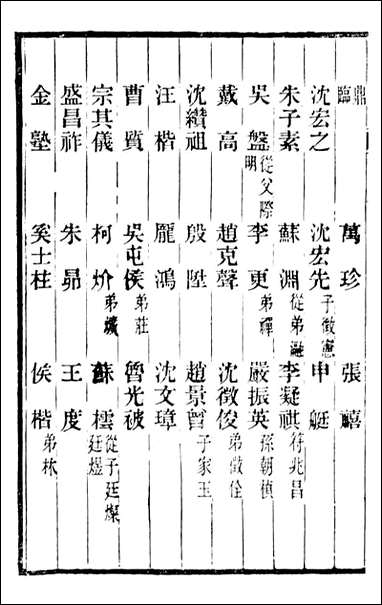 鼎臨 萬珍 張禧
沈宏之 沈宏先 子徵憲 申艇
朱子素 蘇淵 從弟瀜 李凝祺 符兆昌
吳盤 從父際明 李更 弟禪 嚴振英 孫朝楨
戴高 趙克聲 沈徵俊 弟徵佺
沈纘祖 殷陞 趙景曾 子家玉
汪楷 龎鴻 沈文璋
曹質 吳屯侯 弟莊 魯光被
宗其儀 柯炌 弟 蘇霔 從子廷燦 廷煜
盛昌祚 朱昴 王度
金塾 奚士柱 侯楷 弟